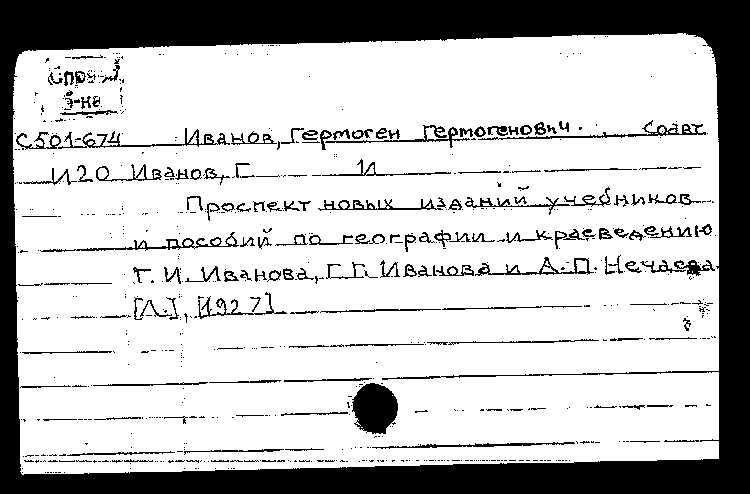 Справ.
б-ка
С501-674 Иванов, Гермоген Гермогенович. Соавт.
И20 Иванов, Г. И
Проспект новых изданий учебников
и пособий по географии и краеведению
Г. И. Иванова, Г. Г. Иванова и А. П. Нечаева.
[Л.], [1927]